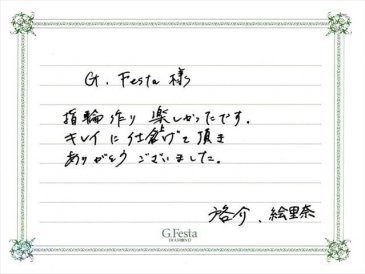 G. Festa 様
指輪作り楽しかったです.
キレイに仕上げて頂き
ありがとうございました.
啓介、絵里奈
G.Festa
DIAMOND